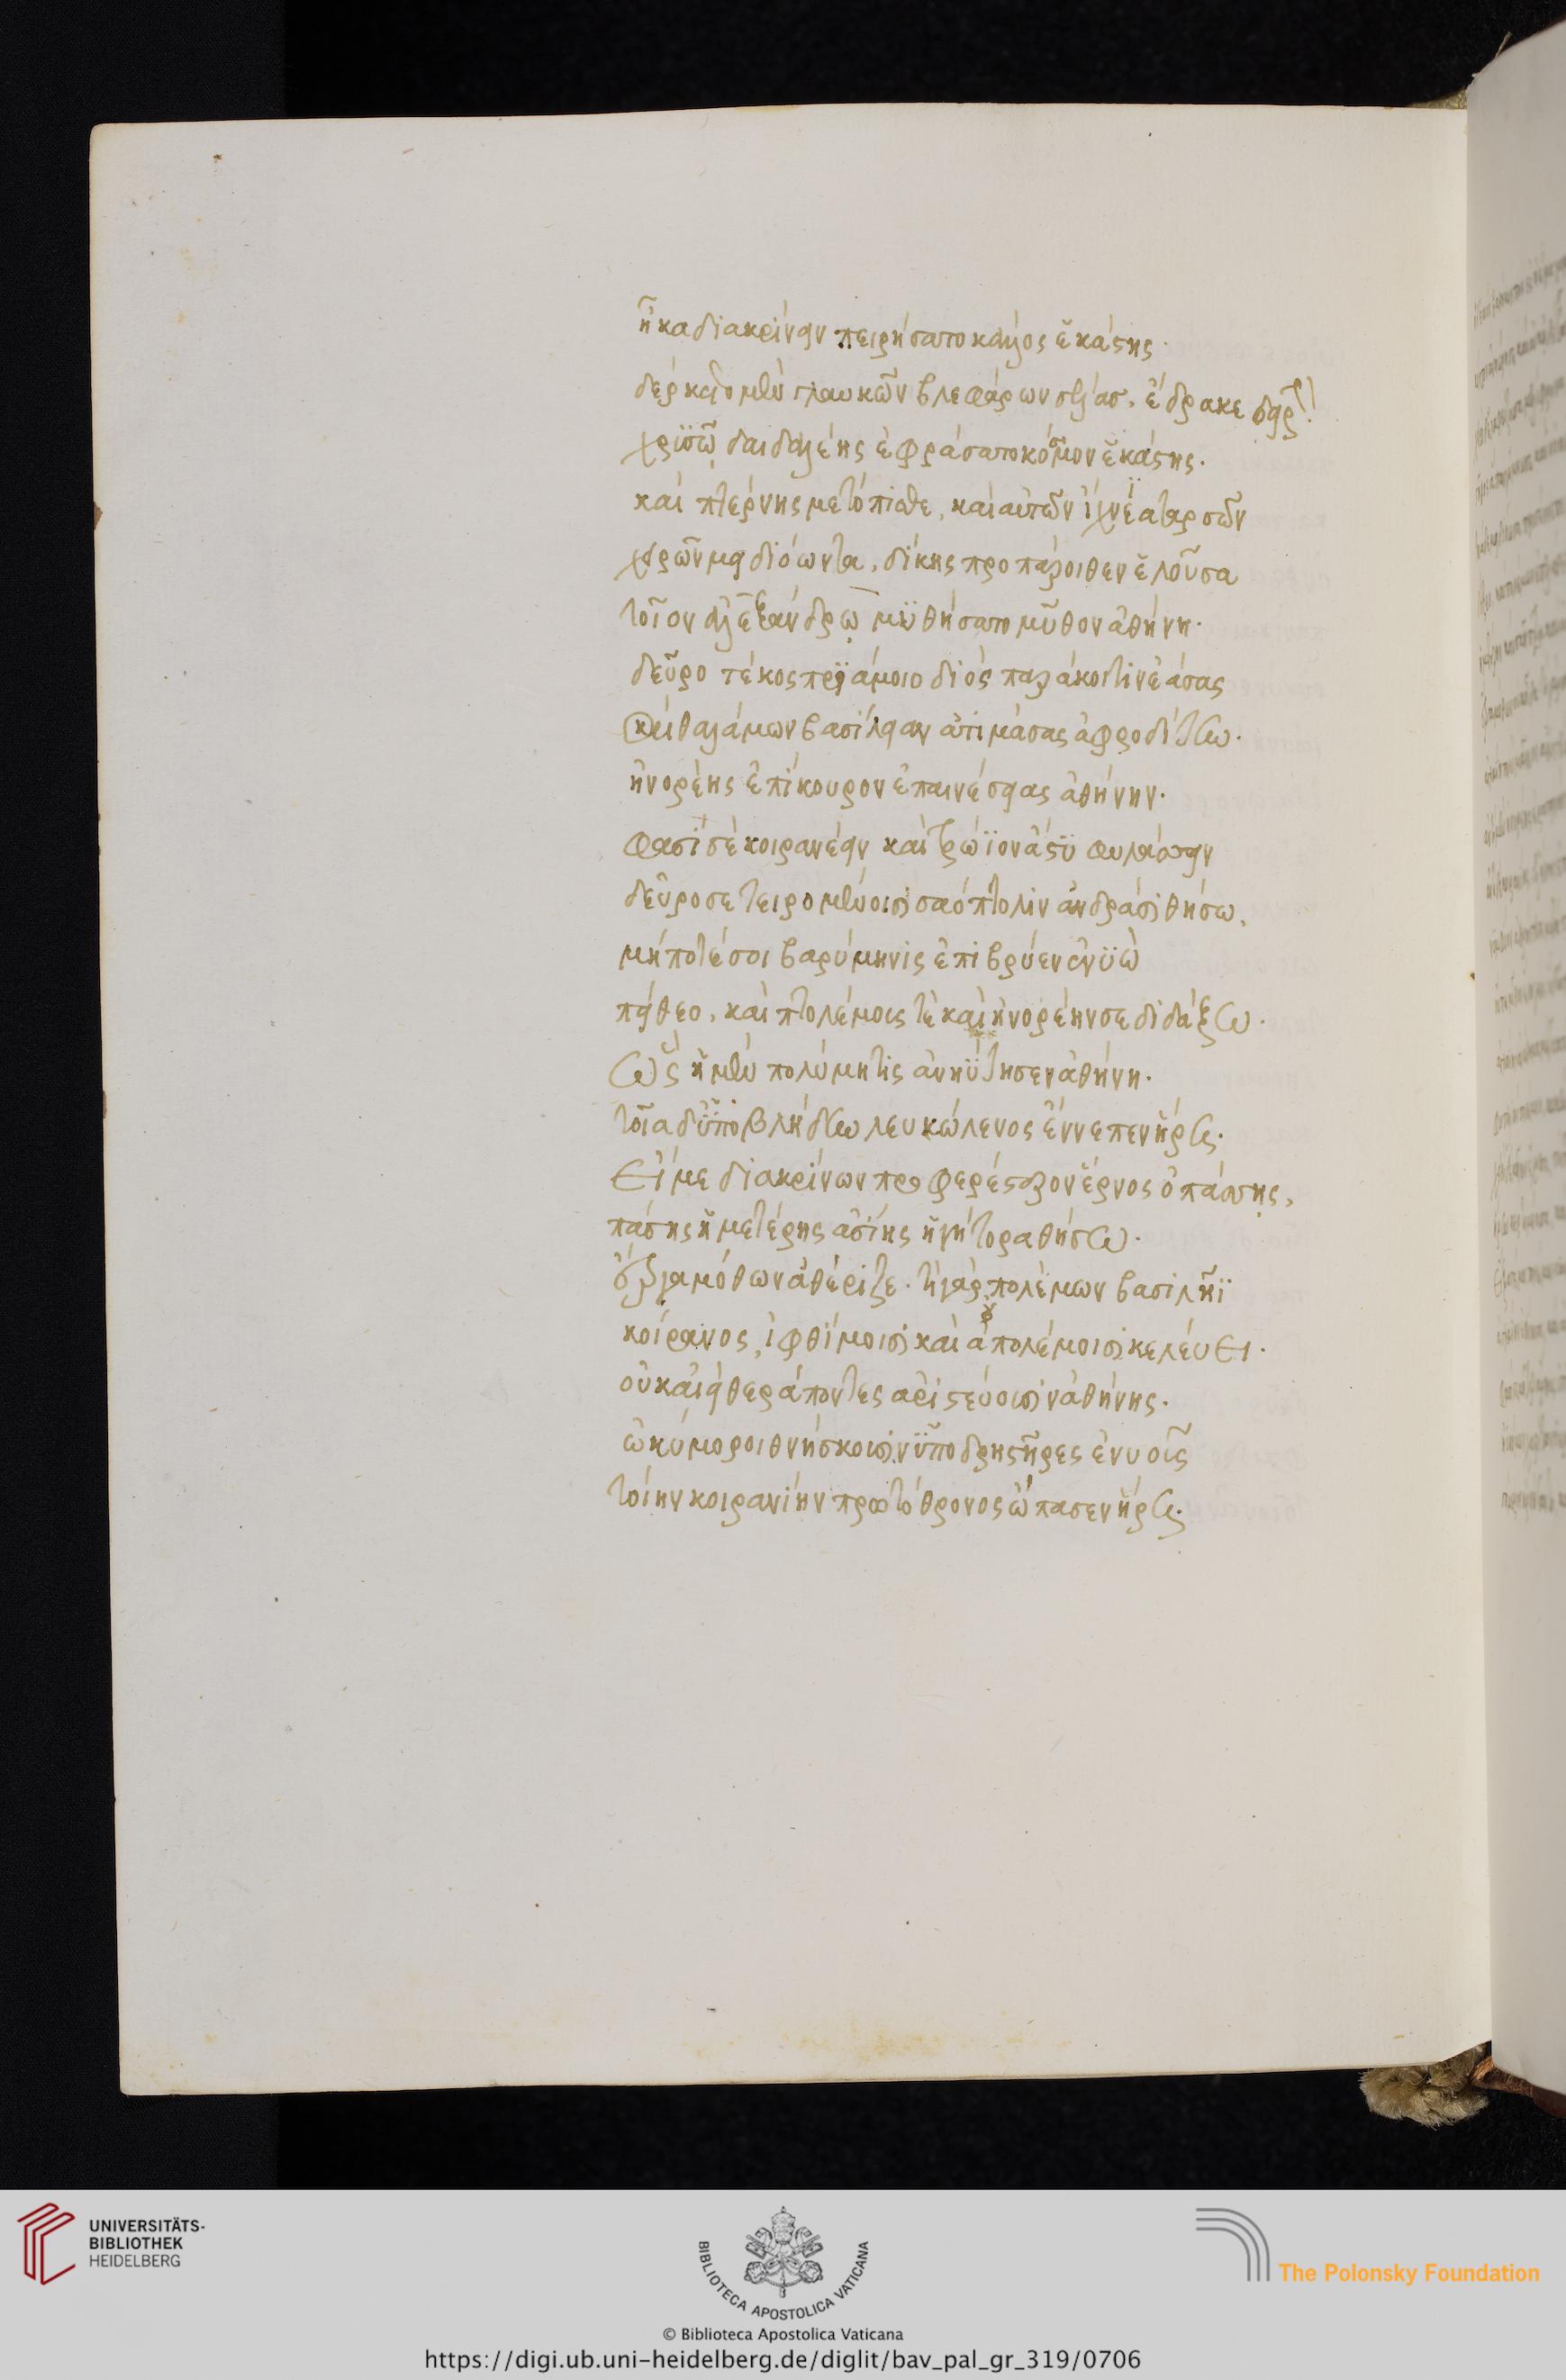 ἧκα διακρίνειν πειρήσατο κάλλος ἑκάστης·
δέρκετο μὲν γλαυκῶν βλεφάρων σέλας, ἔδρακε δειρὴν
χρϋσῶ δαιδαλέης ἐφράσατο κόσμον ἑκάστης·
καὶ πτέρνης μετόπισθε, καὶ αὐτῶν ἴχνέα ταρσῶν
χειρῶν μειδιόωντα, δίκης προπάροιθεν ἑλοῦσα
τοῖον ἀλεξάνδρω μϋθήσατο μῦθον ἀθήνη·
δεῦρο τέκος πρϊάμοιο διὸς παράκοιτιν ἐάσας
καὶ θαλάμων βασίλειαν ἀτιμάσας ἀφροδίτην·
ἠνορέης ἐπίκουρον ἐπαινέσειας ἀθήνην·
φασί σὲ κοιρανέειν καὶ τρώϊον ἄστϋ φυλάσσειν
δεῦρο σε τειρομένοισι σαόπτολιν ἀνδράσι θήσω,
μήποτέ σοι βαρύμηνις ἐπιβρύεν ἐνϋὼ
πείθεο, καὶ πτολέμοις τὲ καὶ ἠνορέην σε διδάξω·
ὣς ἡ μὲν πολύμητις ἀνηΰτησεν ἀθήνη·
τοῖα δ' ὑποβλήδην λευκώλενος ἔννεπεν ἥρη·
Εἴ με διακρίνων προφερέστερον ἔρνος ὀπάσσης,
πάσης ἡμετέρης ἀσίης ἡγήτορα θήσω·
ἔργα μόθων ἀθέριζε· τί γὰρ πολέμων βασιλῆϊ
κοίρανος, ἰφθίμοισι καὶ ἀπολέμοισι κελέυει·
οὐκ αἰεὶ θεράποντες ἀριστεύουσιν ἀθήνης·
ὠκύμοροι θνήσκουσιν ϋποδρηστῆρες ἐνυοῖς
τοίην κοιρανίην πρωτόθρονος ὤπασεν ἥρη·
UNIVERSITÄTS-
BIBLIOTHEK
HEIDELBERG
BIBLIOTECA APOSTOLICA VATICANA
The Polonsky Foundation
© Biblioteca Apostolica Vaticana
https://digi.ub.uni-heidelberg.de/diglit/bav_pal_gr_319/0706